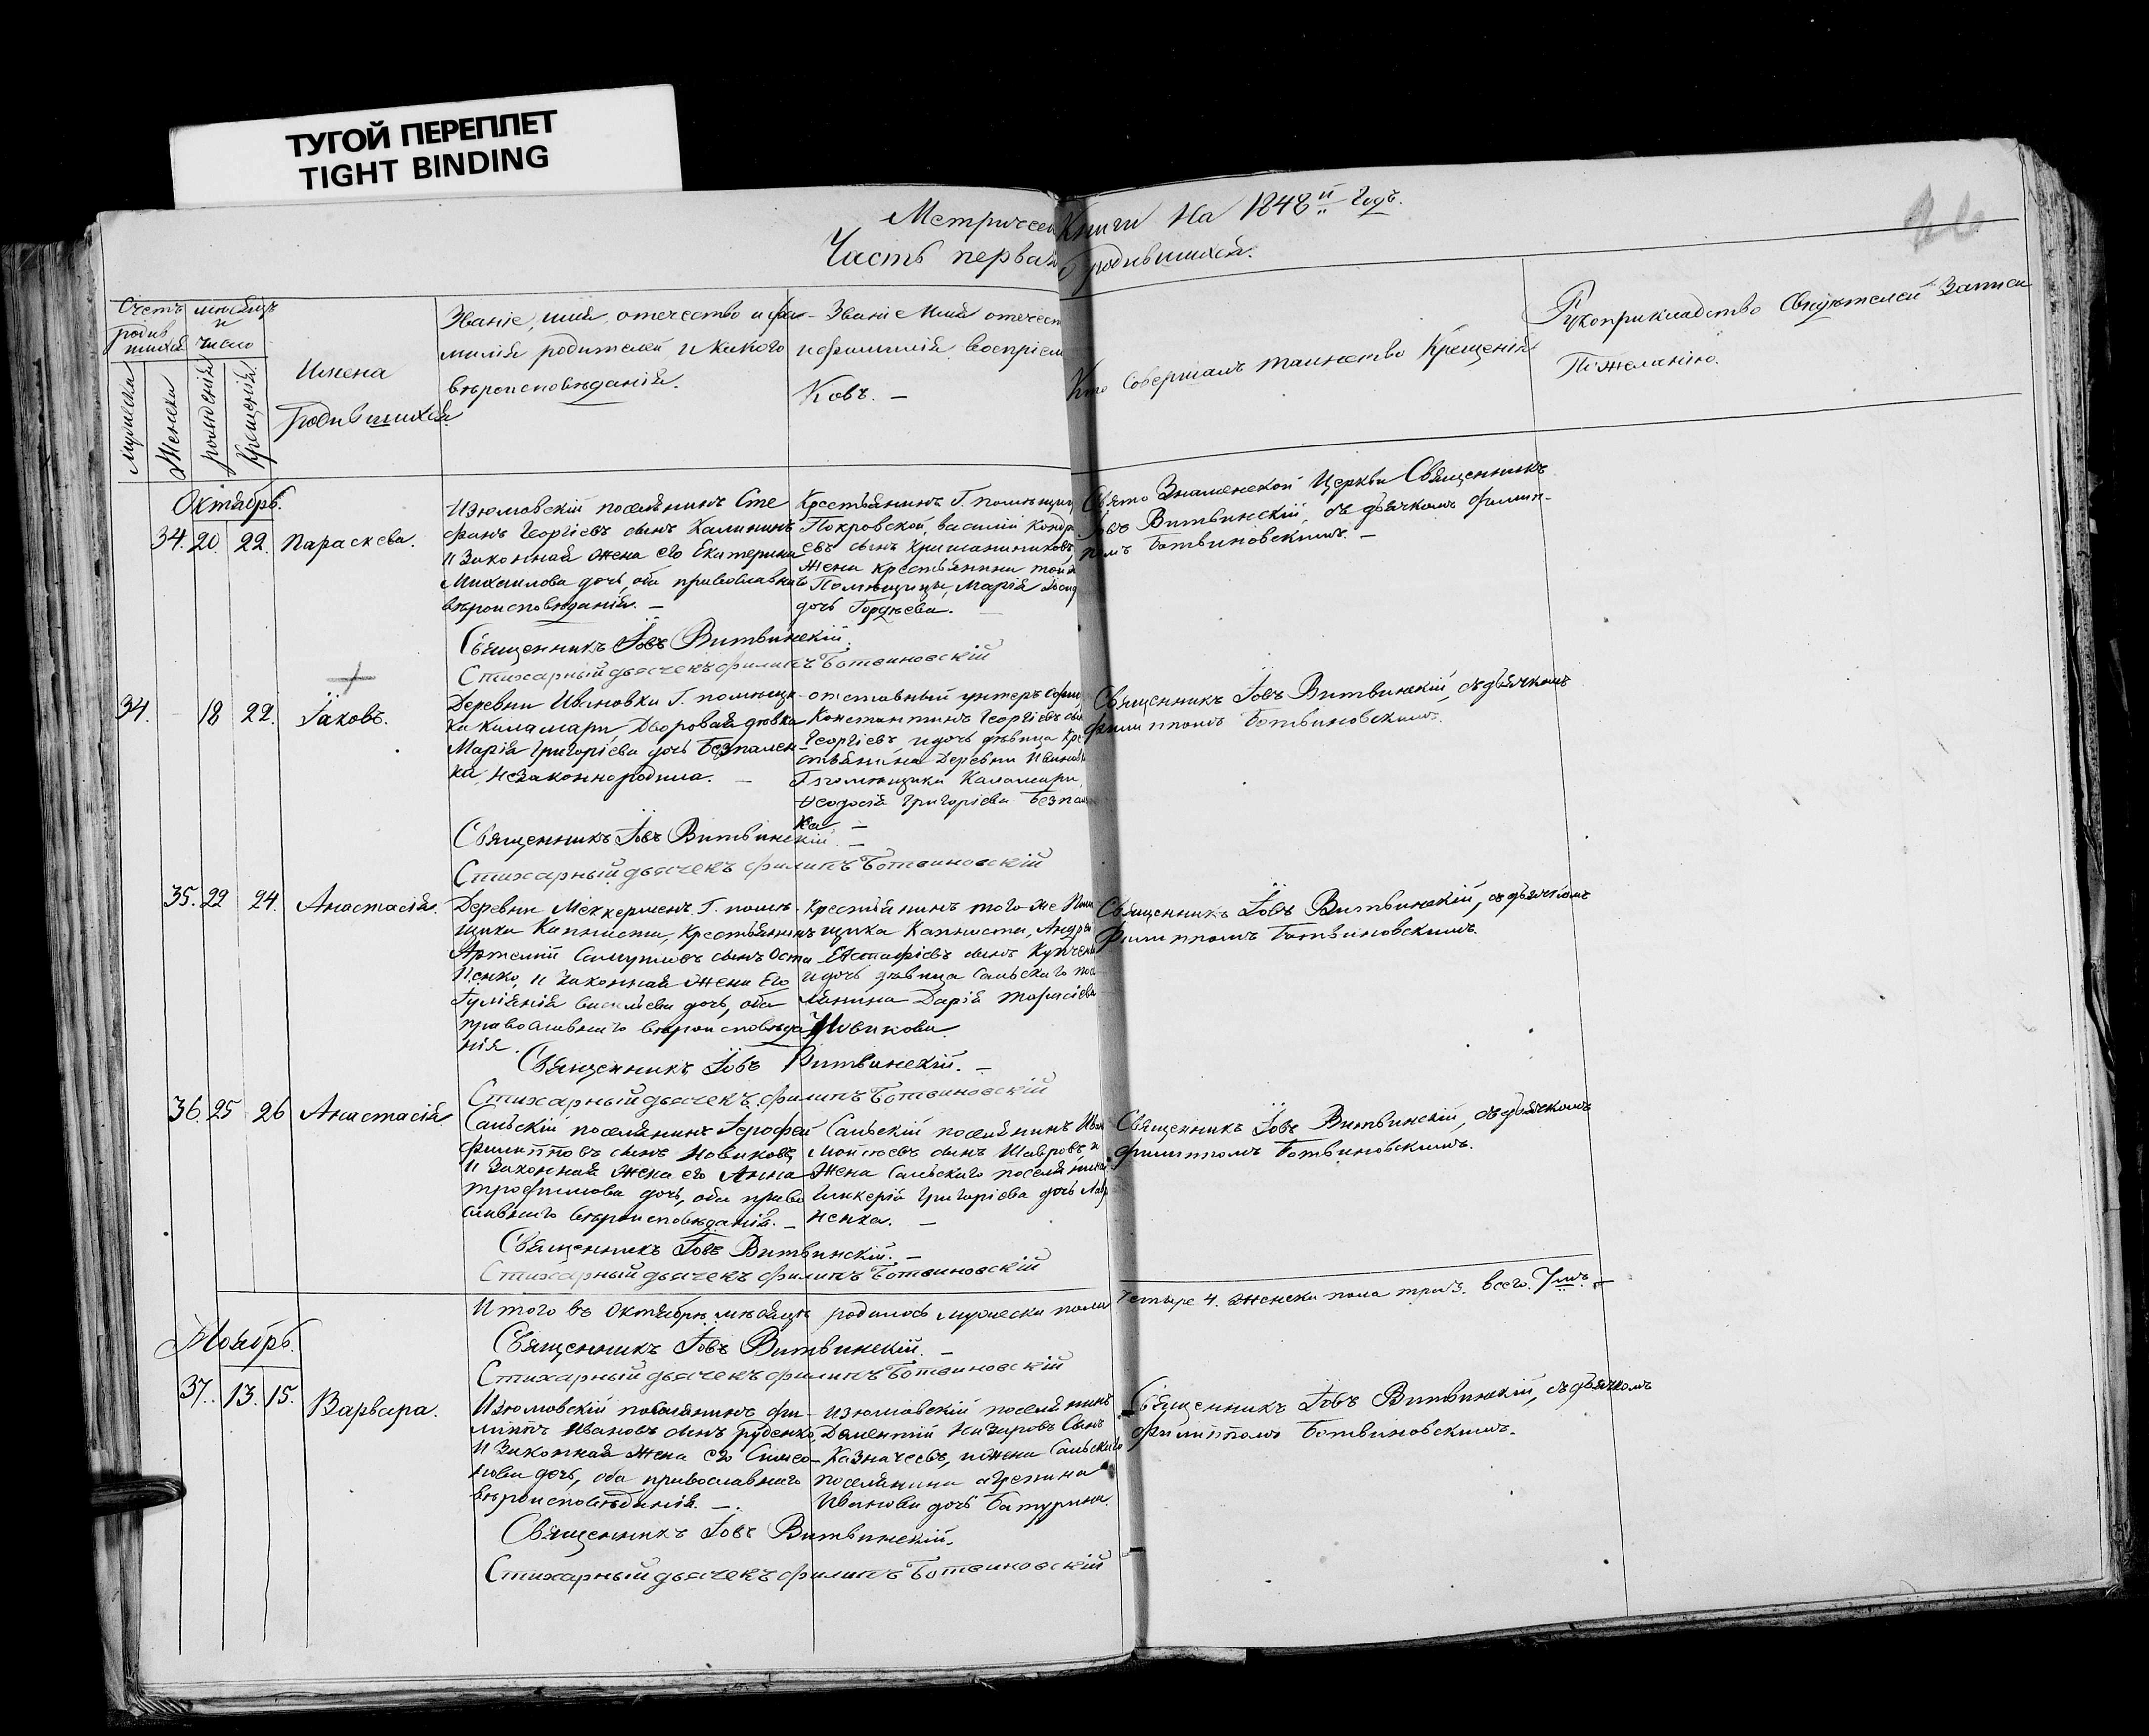 ТУГОЙ ПЕРЕПЛЕТ
TIGHT BINDING
Метрическ Книги На 1848й Годъ.
Часть первая о родившихся.
26
Счетъ родив шихся
мѣсяцъ и число
мужеска
Женска
рожденія
Крещенія.
Имена
Родившихся.
Званіе, имя, отечество и фа-
милія родителей и какого
вѣроисповѣданія.
Званіе Имя отечест
и фамилія воспріем
Ковъ. —
Кто совершалъ таинство Крещенія
Рукоприкладство Свидѣтелей Записи
По желанію.
Октябрь.
34. 20. 22. Параскева.
Изюмовскій поселянинъ Сте
фанъ Георгіевъ сынъ Калининъ
и Законная жена его Екатерина
Михаилова дочь, оба православнаго
вѣроисповѣданія. —
Крестьянинъ Г. помѣщиц
Покровской, василій Кондр
евъ сынъ
жена Крестьянина той
Помѣщицы, Марія
дочь Гордѣева. —
Свято Знаменской Церкви Священникъ
Іовъ Витвинскій, съ дьячкомъ Филип-
помъ Ботвиновскимъ. —
Священникъ Іовъ Витвинскій.
Стихарный дьячекъ Филипъ Ботвиновскій
34. 18 22. Іаковъ.
Деревни Ивановки Г. помѣщи
ка Каламари, Дворовая дѣвка
Марія Григоріева дочь Безпален-
ка, незаконно родила. —
отставный унтеръ офиц
Константинъ Георгіевъ сы
Георгіевъ и дочь дѣвица Кре
стьянина Деревни Иванов
Г помѣщика Каламари,
Ѳеодосія Григоріева Безпал
ка —
Священникъ Іовъ Витвинскій, съ дьячкомъ
Филиппомъ Ботвиновскимъ.
Священникъ Іовъ Витвинскій. —
Стихарный дьячекъ Филипъ Ботвиновскій
35. 22 24. Анастасія.
Деревни Меккерменъ Г. помѣ
щика Капниста, Крестьянинъ
Артемій Самуиловъ сынъ Оста
пенко, и Законная Жена Его
Гуліанія василіева дочь, оба
православнаго вѣроисповѣда
нія.
Крестьянинъ того же Пом
щика Капниста, Андрей
Евстафіевъ сынъ
и дочь дѣвица Сальскаго посе
лянина Дарія Тарасіева
Новикова.
Священникъ Іовъ Витвинскій, съ дьячкомъ
Филиппомъ Ботвиновскимъ.
Священникъ Іовъ Витвинскій. —
Стихарный дьячекъ Филипъ Ботвиновскій
36. 25 26 Анастасія
Сальскій поселянинъ Іерофей
Филипповъ сынъ Новиковъ,
и Законная жена его Анна
Трофимова дочь, оба право
славнаго вѣроисповѣданія. —
Сальскій поселянинъ Иван
Моисеевъ сынъ Шавровъ, и
Жена Сальскаго поселянина
Гликерія Григоріева дочь
ненка. —
Священникъ Іовъ Витвинскій, съ дьячкомъ
Филиппомъ Ботвиновскимъ.
Священникъ Іовъ Витвинскій. —
Стихарный дьячекъ Филипъ Ботвиновскій
Итого въ Октябрѣ мѣсяцѣ родилось мужеска пола четыре 4. женска пола три 3. всего. 7мь. —
Священникъ Іовъ Витвинскій. —
Стихарный дьячекъ Филипъ Ботвиновскій
Ноябрь.
37. 13. 15. Варвара.
Изюмовскій поселянинъ Фи-
липпъ Ивановъ сынъ Руденко,
и Законная Жена его Симео-
нова дочь, оба православнаго
вѣроисповѣданія. —
изюмовскій поселянинъ
Дементій Назаровъ Сынъ
Казначеевъ, и жена Сальскаго
поселянина
Иванова дочь Батурина.
Священникъ Іовъ Витвинскій, съ дьячкомъ
Филиппомъ Ботвиновскимъ.
Священникъ Іовъ Витвинскій.
Стихарный дьячекъ Филипъ Ботвиновскій